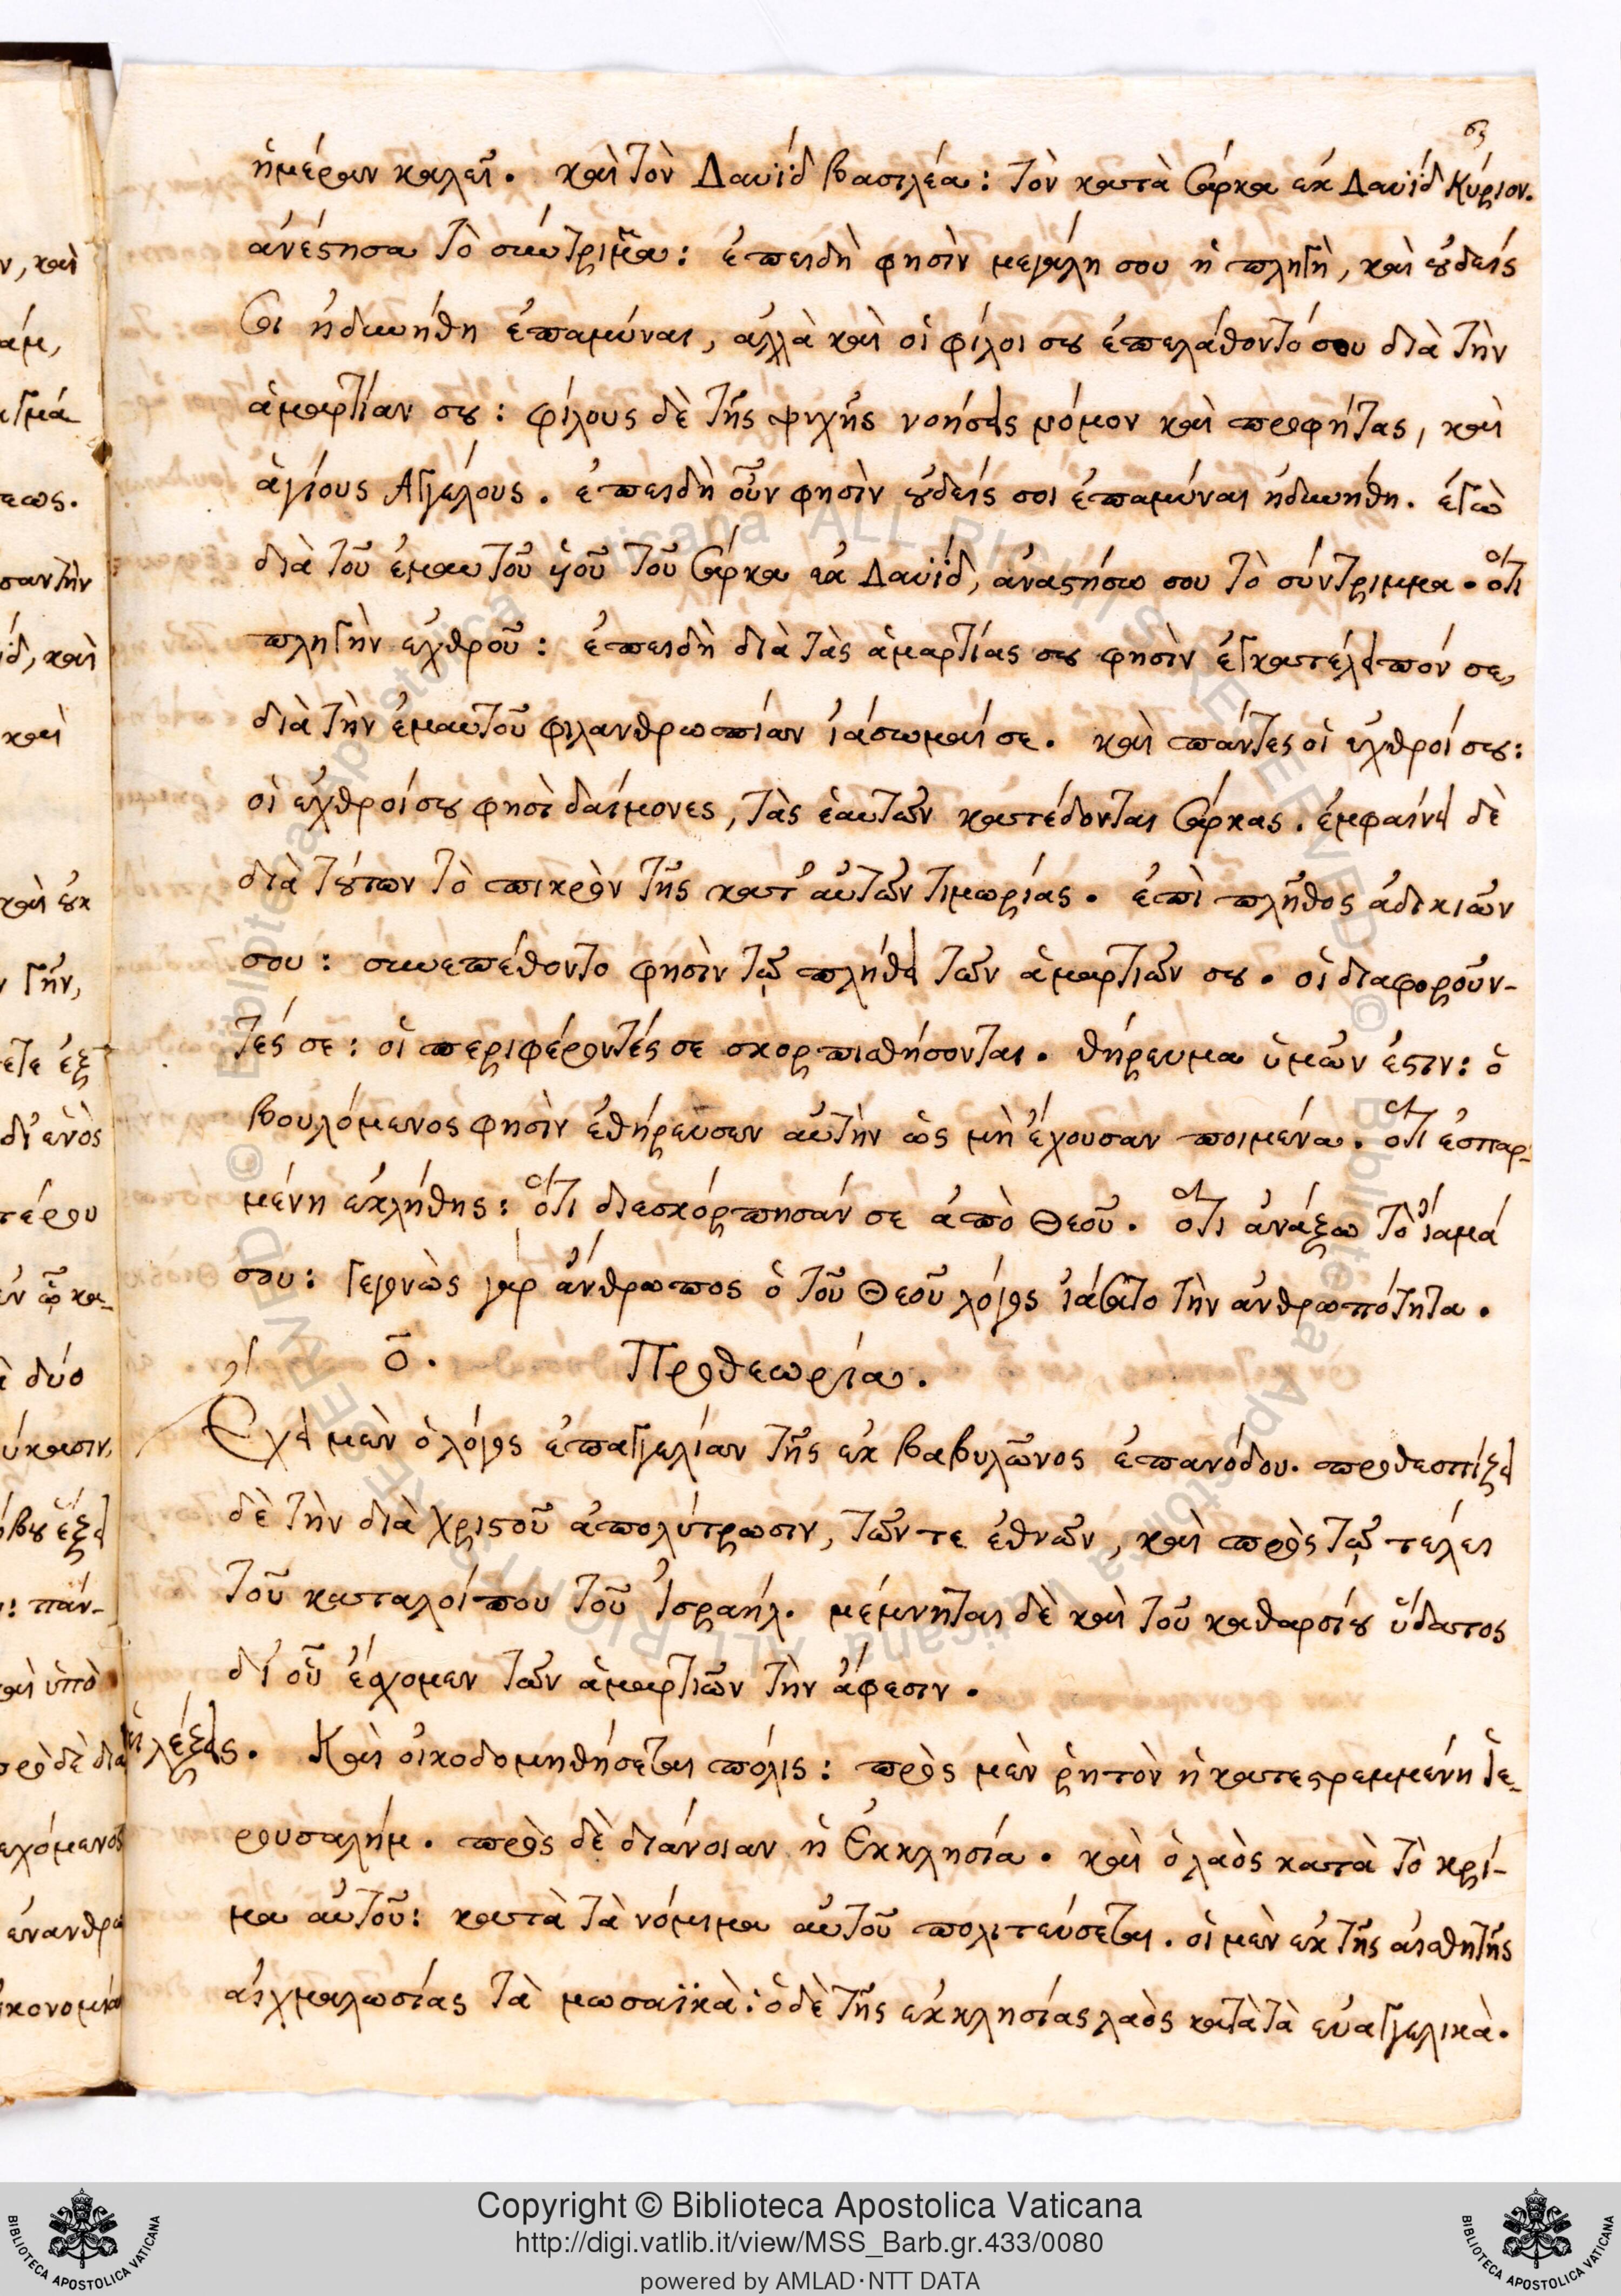 63
ἡμέραν καλεῖ. καὶ τὸν Δαυῒδ βασιλέα: τὸν κατὰ σάρκα ἐκ Δαυῒδ Κύριον.
ἀνέστησα τὸ σύντριμμα: ἐπειδὴ φησὶν μεγάλη σου ἡ πληγὴ, καὶ οὐδείς
σοι ἠδυνήθη ἐπαμύναι, ἀλλὰ καὶ οἱ φίλοι σου ἐπελάθοντό σου διὰ τὴν
ἁμαρτίαν σου: φίλους δὲ τῆς ψυχῆς νοήσεις νόμον καὶ προφήτας, καὶ
ἁγίους Ἀγγέλους. ἐπειδὴ οὖν φησὶν οὐδείς σοι ἐπαμύναι ἠδυνήθη. ἐγὼ
διὰ τοῦ ἐμαυτοῦ υἱοῦ τοῦ σάρκα ἐκ Δαυῒδ, ἀναστήσω σου τὸ σύντριμμα. ὅτι
πληγὴν ἐχθροῦ: ἐπειδὴ διὰ τὰς ἁμαρτίας σου φησὶν ἐγκατέλειπόν σε,
διὰ τὴν ἐμαυτοῦ φιλανθρωπίαν ἰάσωμαί σε. καὶ πάντες οἱ ἐχθροί σου:
οἱ ἐχθροί σου φησὶ δαίμονες, τὰς ἑαυτῶν κατέδονται σάρκας. ἐμφαίνει δὲ
διὰ τούτων τὸ πικρὸν τῆς κατ' αὐτῶν τιμωρίας. ἐπὶ πλῆθος ἀδικιῶν
σου: συνεπέθοντο φησὶν τῷ πλήθει τῶν ἁμαρτιῶν σου. οἱ διαφοροῦν-
τές σε: οἱ περιφέροντές σε σκορπισθήσονται. θήρευμα ὑμῶν ἐστιν: ὁ
βουλόμενος φησὶν ἐθήρευσεν αὐτὴν ὡς μὴ ἔχουσαν ποιμένα. ὅτι ἐσπαρ-
μένη ἐκλήθης: ὅτι διεσκόρπησάν σε ἀπὸ Θεοῦ. ὅτι ἀνάξω τὸ ἴαμά
σου: γεγονὼς γὰρ ἄνθρωπος ὁ τοῦ Θεοῦ λόγος ἰάσατο τὴν ἀνθρωπότητα.
ο̄. Προθεωρία.
Ἔχει μὲν ὁ λόγος ἐπαγγελίαν τῆς ἐκ βαβυλῶνος ἐπανόδου. προθεσπίζει
δὲ τὴν διὰ χριστοῦ ἀπολύτρωσιν, τῶν τε ἐθνῶν, καὶ πρὸς τῷ τέλει
τοῦ καταλοίπου τοῦ Ἰσραήλ. μέμνηται δὲ καὶ τοῦ καθαρσίου ὕδατος
δι' οὗ ἔχομεν τῶν ἁμαρτιῶν τὴν ἄφεσιν.
ἡ λέξις. Καὶ οἰκοδομηθήσεται πόλις: πρὸς μὲν ῥητὸν ἡ κατεστρεμμένη Ἱε-
ρουσαλήμ. πρὸς δὲ διάνοιαν ἡ Ἐκκλησία. καὶ ὁ λαὸς κατὰ τὸ κρί-
μα αὐτοῦ: κατὰ τὰ νόμιμα αὐτοῦ πολιτεύσεται. οἱ μὲν ἐκ τῆς αἰσθητῆς
αἰχμαλωσίας τὰ μωσαϊκὰ: ὁ δὲ τῆς ἐκκλησίας λαὸς κατὰ τὰ εὐαγγελικὰ.
Copyright © Biblioteca Apostolica Vaticana
http://digi.vatlib.it/view/MSS_Barb.gr.433/0080
powered by AMLAD·NTT DATA
BIBLIOTECA APOSTOLICA VATICANA
BIBLIOTECA APOSTOLICA VATICANA